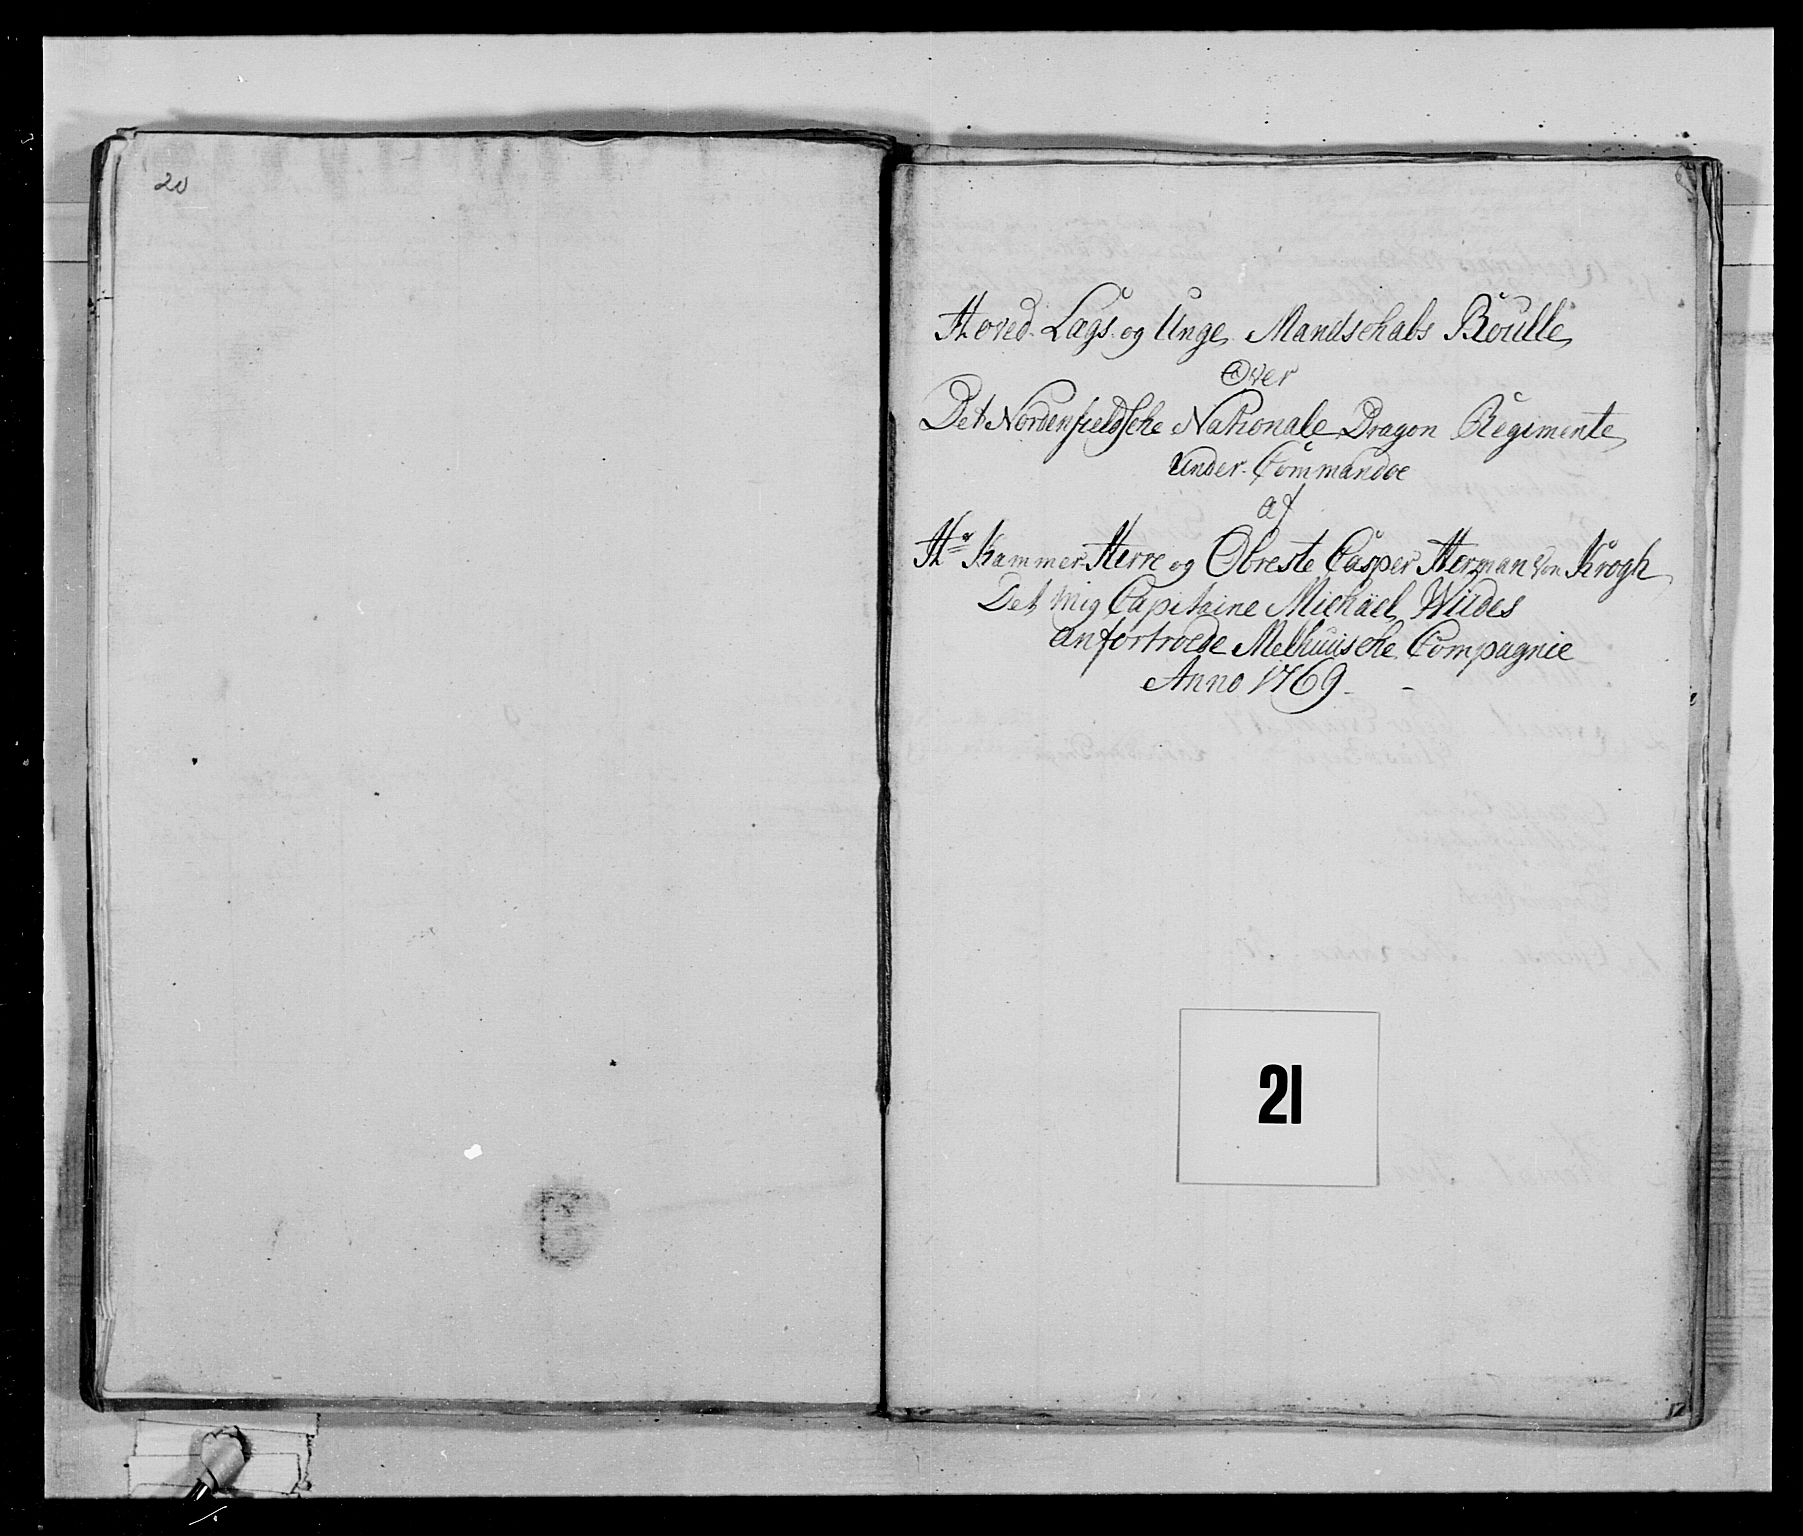 20
Hoved. Lægs. og Unge Mandschabs Roulle
Over
Det Nordenfieldsche Nationale Dragon Regimente
under Commandoe
af
Hr Kammer Herre og Obreste Casper Herman von Krogh
Det mig Capitaine Michäel Wildes
anfortroede Melhuusche Compagnie
Anno 1769.
21